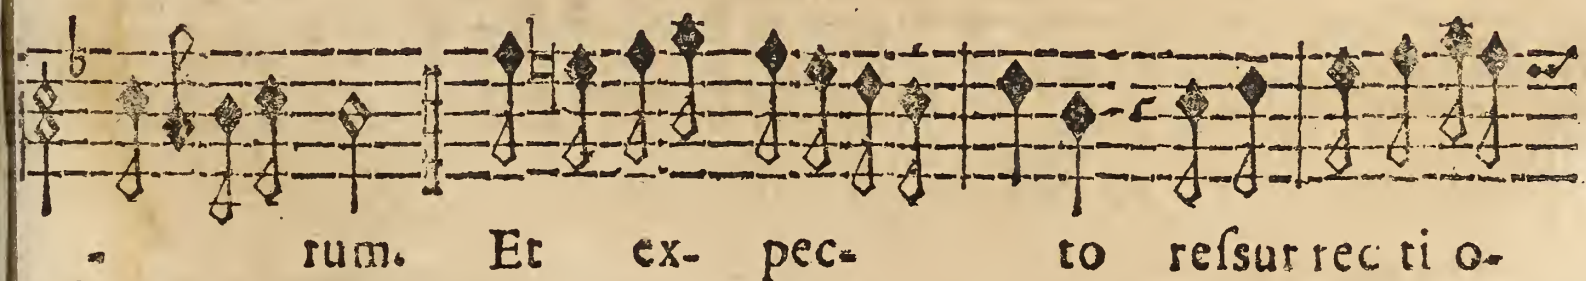 - rum. Et ex- pec- to reſsur rec ti o-